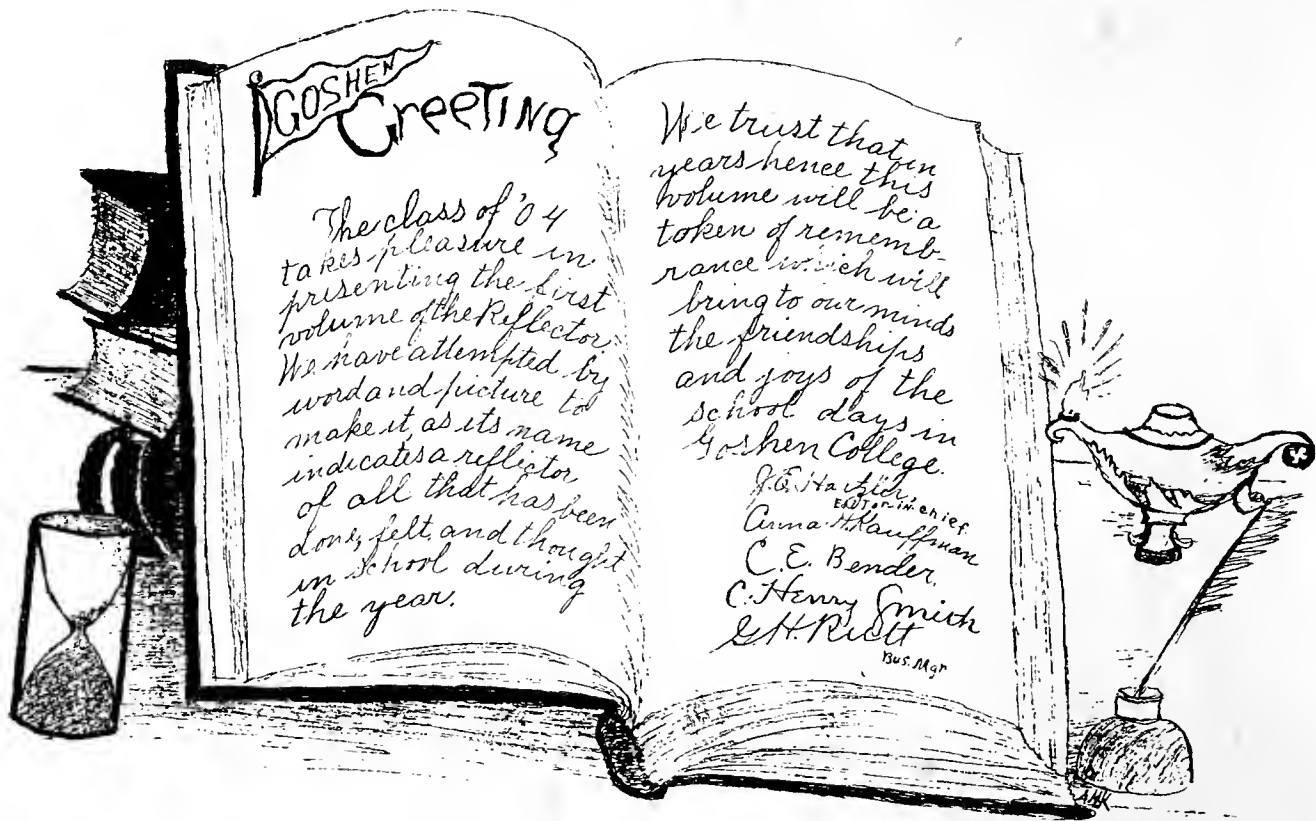 GOSHEN
GreeTING
The class of '04
takes pleasure in
presenting the first
volume of the Reflector
We have attempted by
word and picture to
make it as its name
indicates a reflector
of all that has been
done, felt, and thought
in school during
the year.
We trust that in
years hence this
volume will be a
token of rememb-
rance which will
bring to our minds
the friendships
and joys of the
school days in
Goshen College.
J.E. Hartzler,
EDITOR IN chief
Anna H. Kauffman
C. E. Bender,
C. Henry Smith
Bus. Mgr
AHK